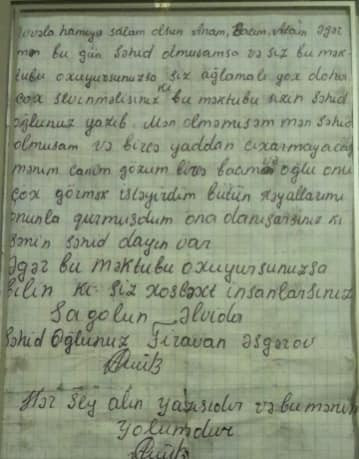 əvvəla hamıya salam olsun Anam, Bacım, Atam əgər
mən bu gün şəhid olmuşamsa və siz bu mək
tubu oxuyursunuzsa siz ağlamalı yox daha
çox sevinməlisiniz ki bu məktubu sizin şəhid
oğlunuz yazıb. Mən olməmişəm mən şəhid
olmuşam və bircə yaddan çıxarmayacağ
mənim canım gözüm bircə bacım oğlu onu
çox görmək istəyirdim bütün xəyallarımı
onunla qurmuşdum ona danışarsınız ki
sənin şəhid dayın var
əgər bu məktubu oxuyursunuzsa
bilin ki siz xoşbəxt insanlarsınız
Sagolun Əlvida
Şəhid Oğlunuz Firavan Əsgərov
Hər şey alın yazısıdır və bu mənim
Yolumdur